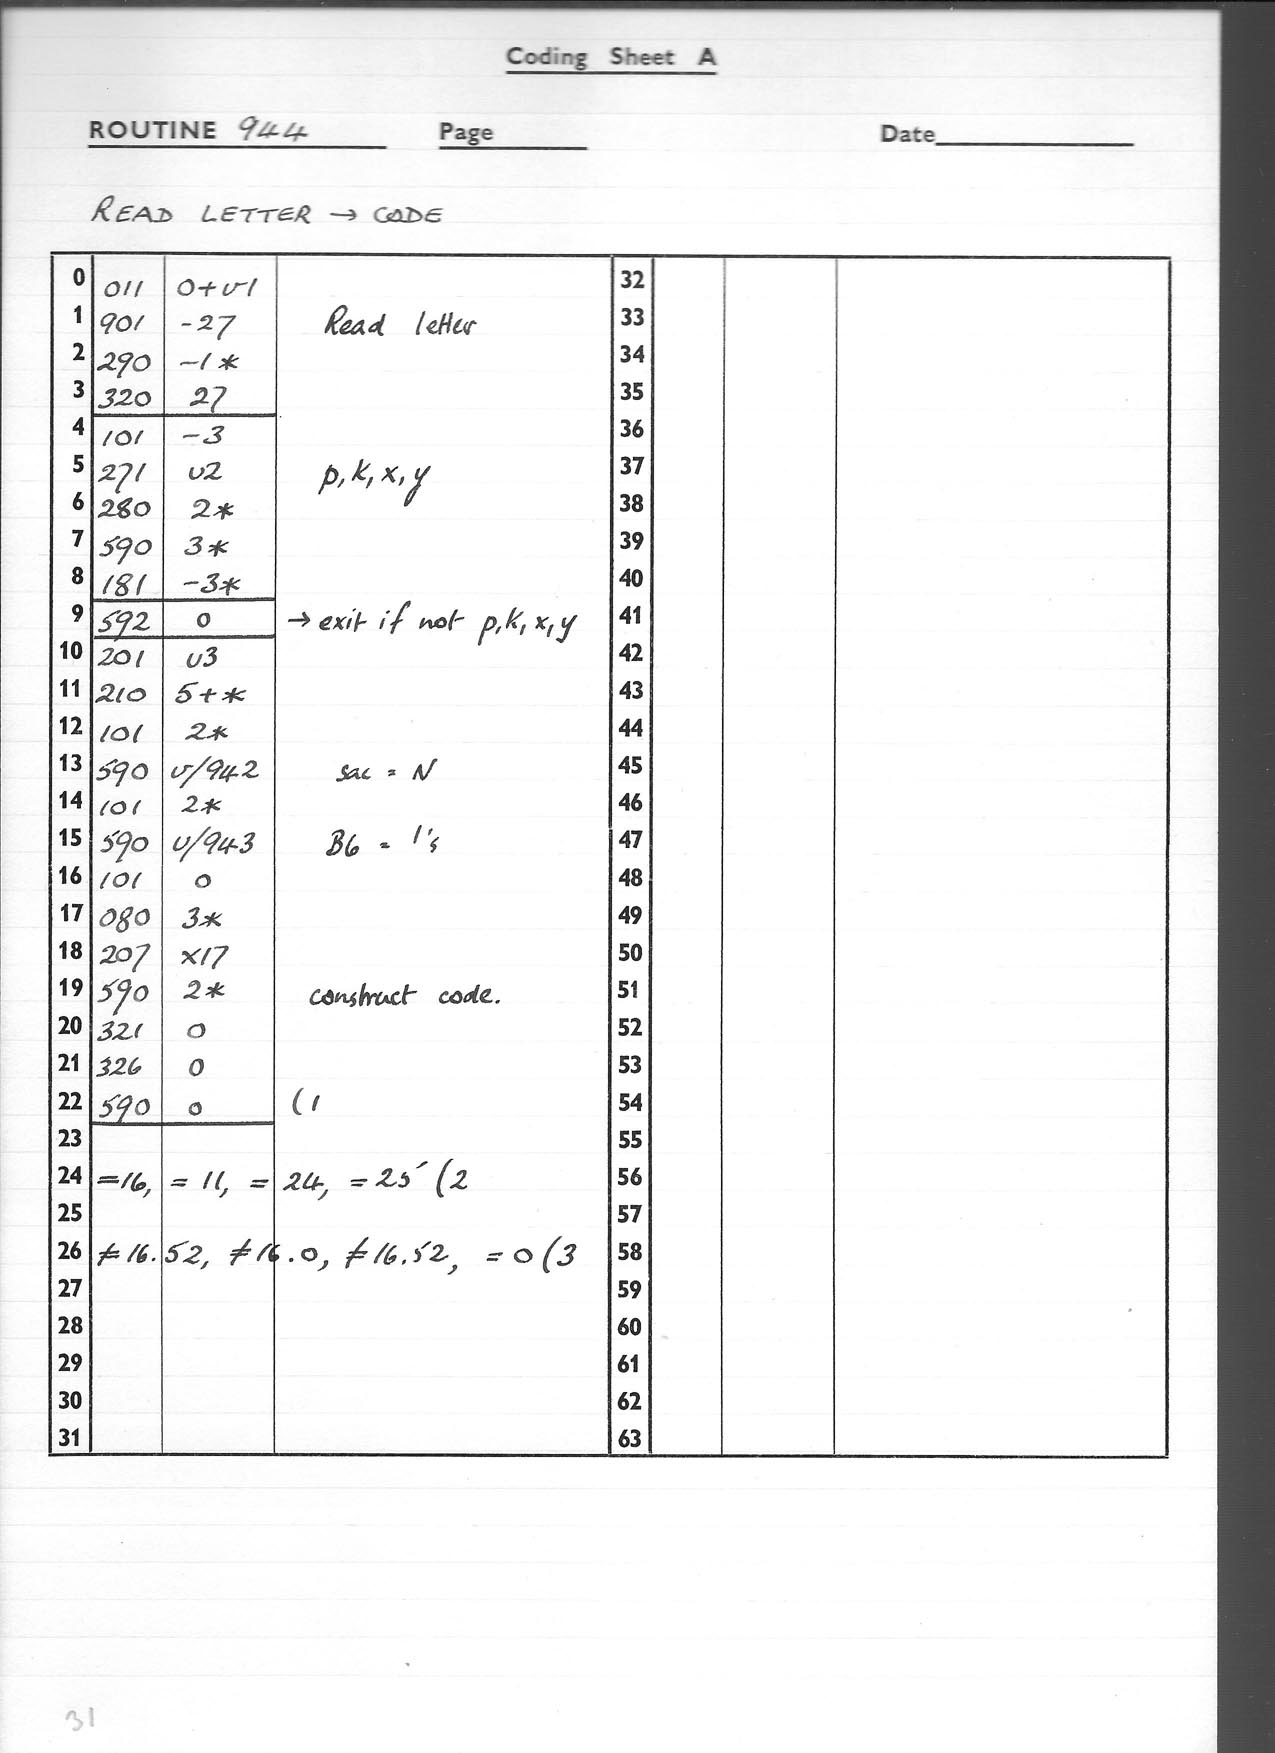 Coding Sheet A
ROUTINE 944 Page Date
READ LETTER → CODE
0 011 0+v1
1 901 -27 Read letter
2 290 -1*
3 320 27
4 101 -3
5 271 v2 p, k, x, y
6 280 2*
7 590 3*
8 181 -3*
9 592 0 → exit if not p, k, x, y
10 201 v3
11 210 5+*
12 101 2*
13 590 v/942 sac = N
14 101 2*
15 590 v/943 B6 = 1's
16 101 0
17 080 3*
18 207 x17
19 590 2* construct code.
20 321 0
21 326 0
22 590 0 (1
23
24 =16, = 11, = 24, = 25 (2
25
26 ≠16.52, ≠16.0, ≠16.52, = 0 (3
27
28
29
30
31
32
33
34
35
36
37
38
39
40
41
42
43
44
45
46
47
48
49
50
51
52
53
54
55
56
57
58
59
60
61
62
63
31